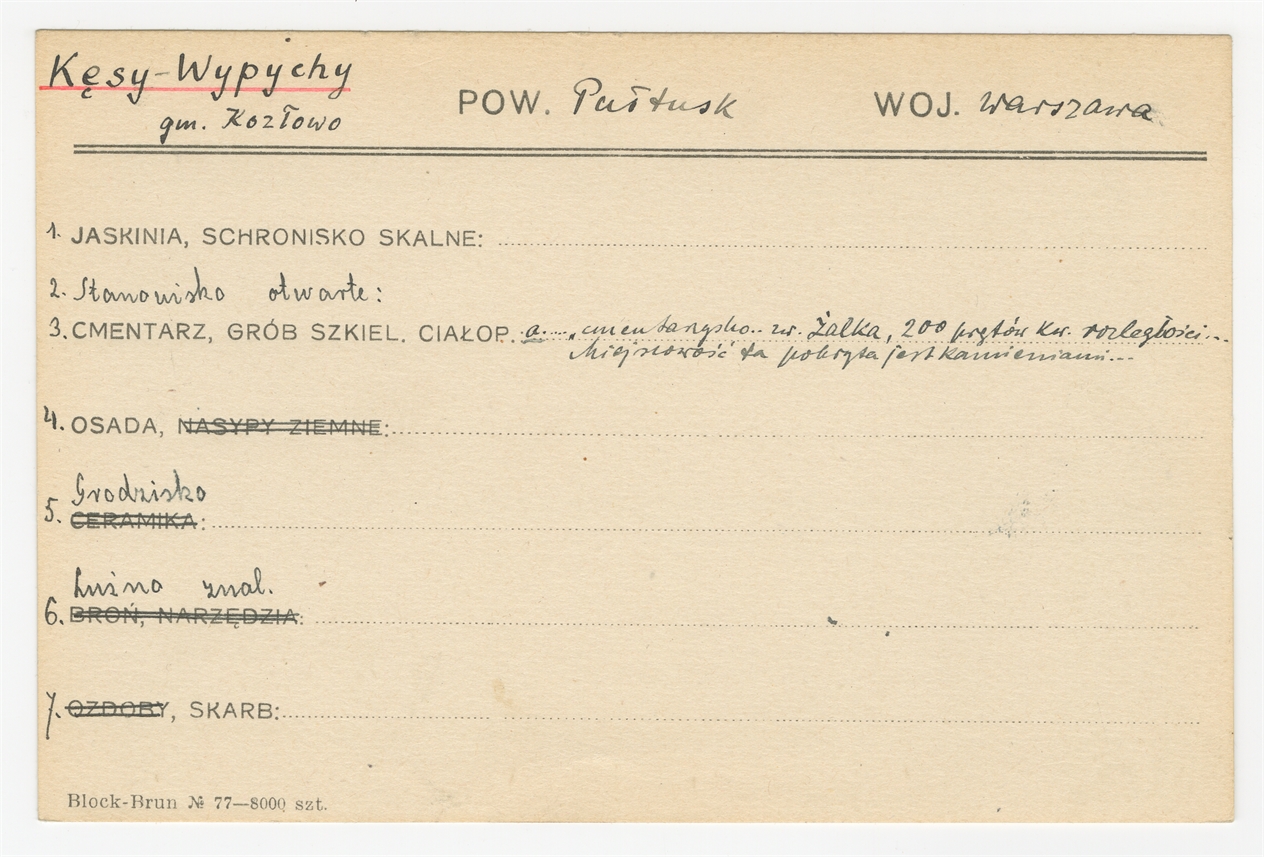 Kęsy-Wypychy
gm. Kozłowo
POW. Pułtusk WOJ. Warszawa
1. JASKINIA, SCHRONISKO SKALNE:
2. Stanowisko otwarte:
3. CMENTARZ, GRÓB SZKIEL. CIAŁOP. a. „cmentarzysko.. zw. Żalka, 200 prętów kw. rozległości...
Miejscowość ta pokryta jest kamieniami...
4. OSADA, NASYPY ZIEMNE:
Grodzisko
5. CERAMIKA:
Luźno znal.
6. BROŃ, NARZĘDZIA:
7. OZDOBY, SKARB:
Block-Brun № 77—8000 szt.